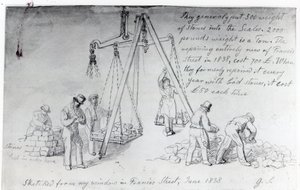 They generally put 300 weight
of stones into the Scales. 2000
pounds weight is a Tonn. The
repairing entirely new of Francis
Street in 1838, cost 700 £. When
they formerly repaired it every
year with bad stones, it cost
£50 each time
Sketched from my window in Francis Street, June 1838
G. S.